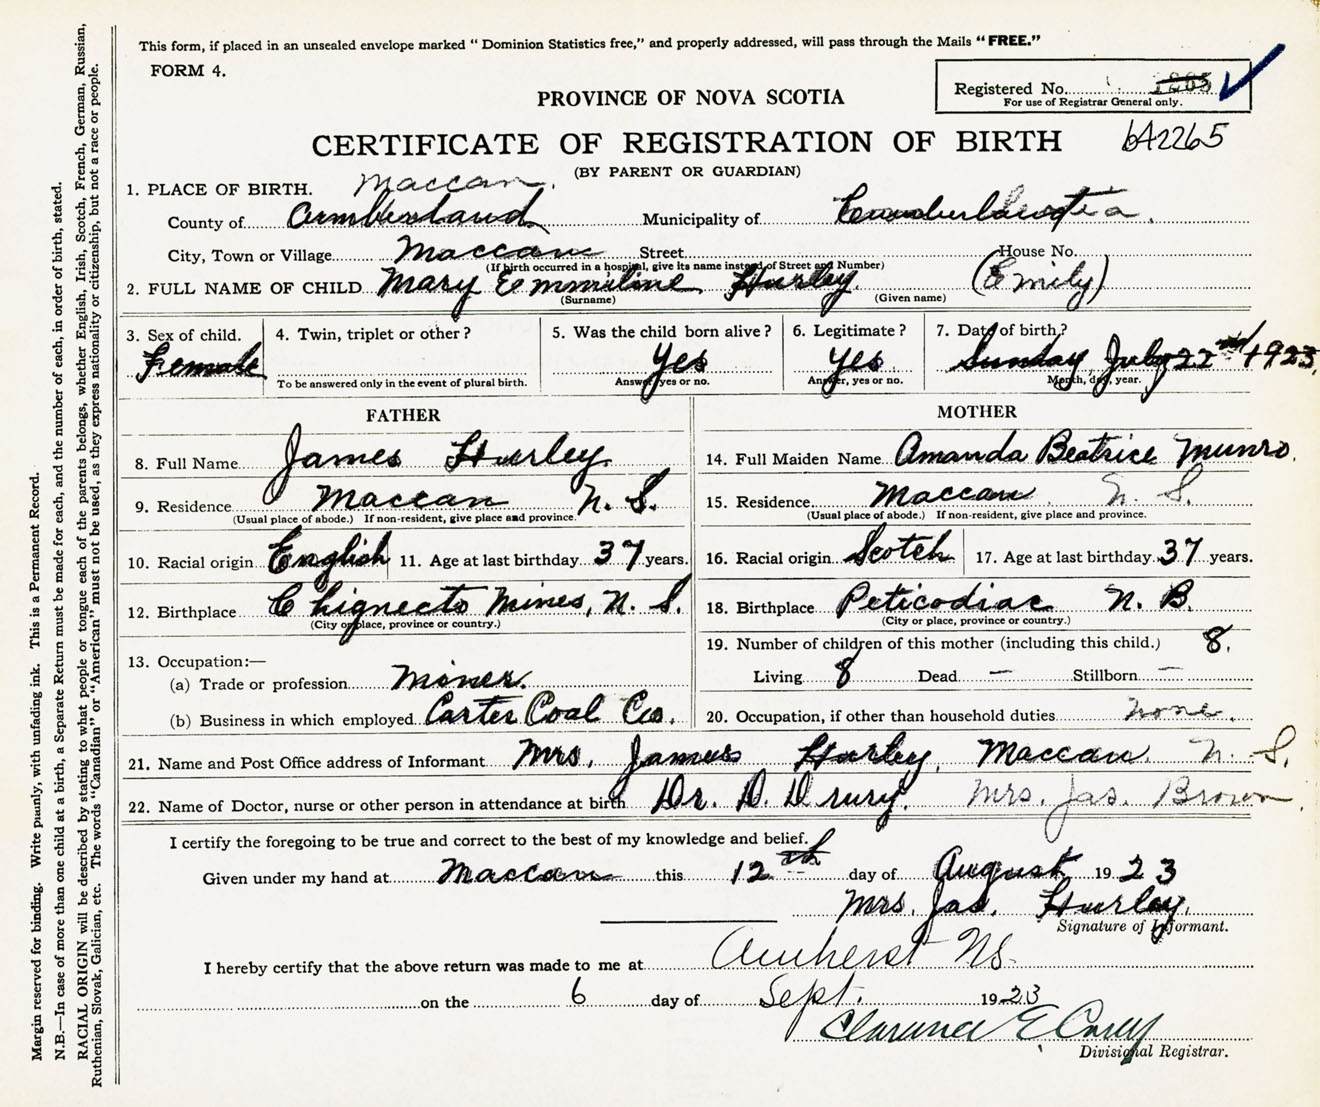 This form, if placed in an unsealed envelope marked "Dominion Statistics free," and properly addressed, will pass through the Mails "FREE."
FORM 4.
Registered No. 1203
For use of Registrar General only.
PROVINCE OF NOVA SCOTIA
CERTIFICATE OF REGISTRATION OF BIRTH
642265
(BY PARENT OR GUARDIAN)
1. PLACE OF BIRTH. Maccan.
County of Cumberland Municipality of
City, Town or Village Maccan Street House No.
(If birth occurred in a hospital, give its name instead of Street and Number)
2. FULL NAME OF CHILD Mary Emmiline Hurley. (Emily)
(Surname) (Given name)
3. Sex of child. 4. Twin, triplet or other? 5. Was the child born alive? 6. Legitimate? 7. Date of birth?
Female Yes Yes. Sunday July 22nd 1923.
To be answered only in the event of plural birth. Answer, yes or no. Answer, yes or no. Month, day, year.
FATHER MOTHER
8. Full Name James Hurley. 14. Full Maiden Name Amanda Beatrice Munro.
9. Residence Maccan N. S. 15. Residence Maccan N. S.
(Usual place of abode.) If non-resident, give place and province. (Usual place of abode.) If non-resident, give place and province.
10. Racial origin English 11. Age at last birthday 37 years. 16. Racial origin Scotch 17. Age at last birthday 37 years.
12. Birthplace Chignecto Mines, N. S. 18. Birthplace Peticodiac N. B.
(City or place, province or country.) (City or place, province or country.)
19. Number of children of this mother (including this child.) 8.
13. Occupation:—
(a) Trade or profession Miner. Living 8 Dead — Stillborn —
(b) Business in which employed Carter Coal Co. 20. Occupation, if other than household duties none.
21. Name and Post Office address of Informant Mrs. James Hurley, Maccan N. S.
22. Name of Doctor, nurse or other person in attendance at birth Dr. D. Drury. Mrs. Jas. Brown.
I certify the foregoing to be true and correct to the best of my knowledge and belief.
Given under my hand at Maccan this 12th day of August 1923
Mrs. Jas. Hurley.
Signature of Informant.
I hereby certify that the above return was made to me at Amherst NS.
on the 6 day of Sept. 1923
Clarence E. Corey
Divisional Registrar.
Margin reserved for binding. Write plainly, with unfading ink. This is a Permanent Record.
N.B.—In case of more than one child at a birth, a Separate Return must be made for each, and the number of each, in order of birth, stated.
RACIAL ORIGIN will be described by stating to what people or tongue each of the parents belongs, whether English, Irish, Scotch, French, German, Russian,
Ruthenian, Slovak, Galician, etc. The words "Canadian" or "American" must not be used, as they express nationality or citizenship, but not a race or people.